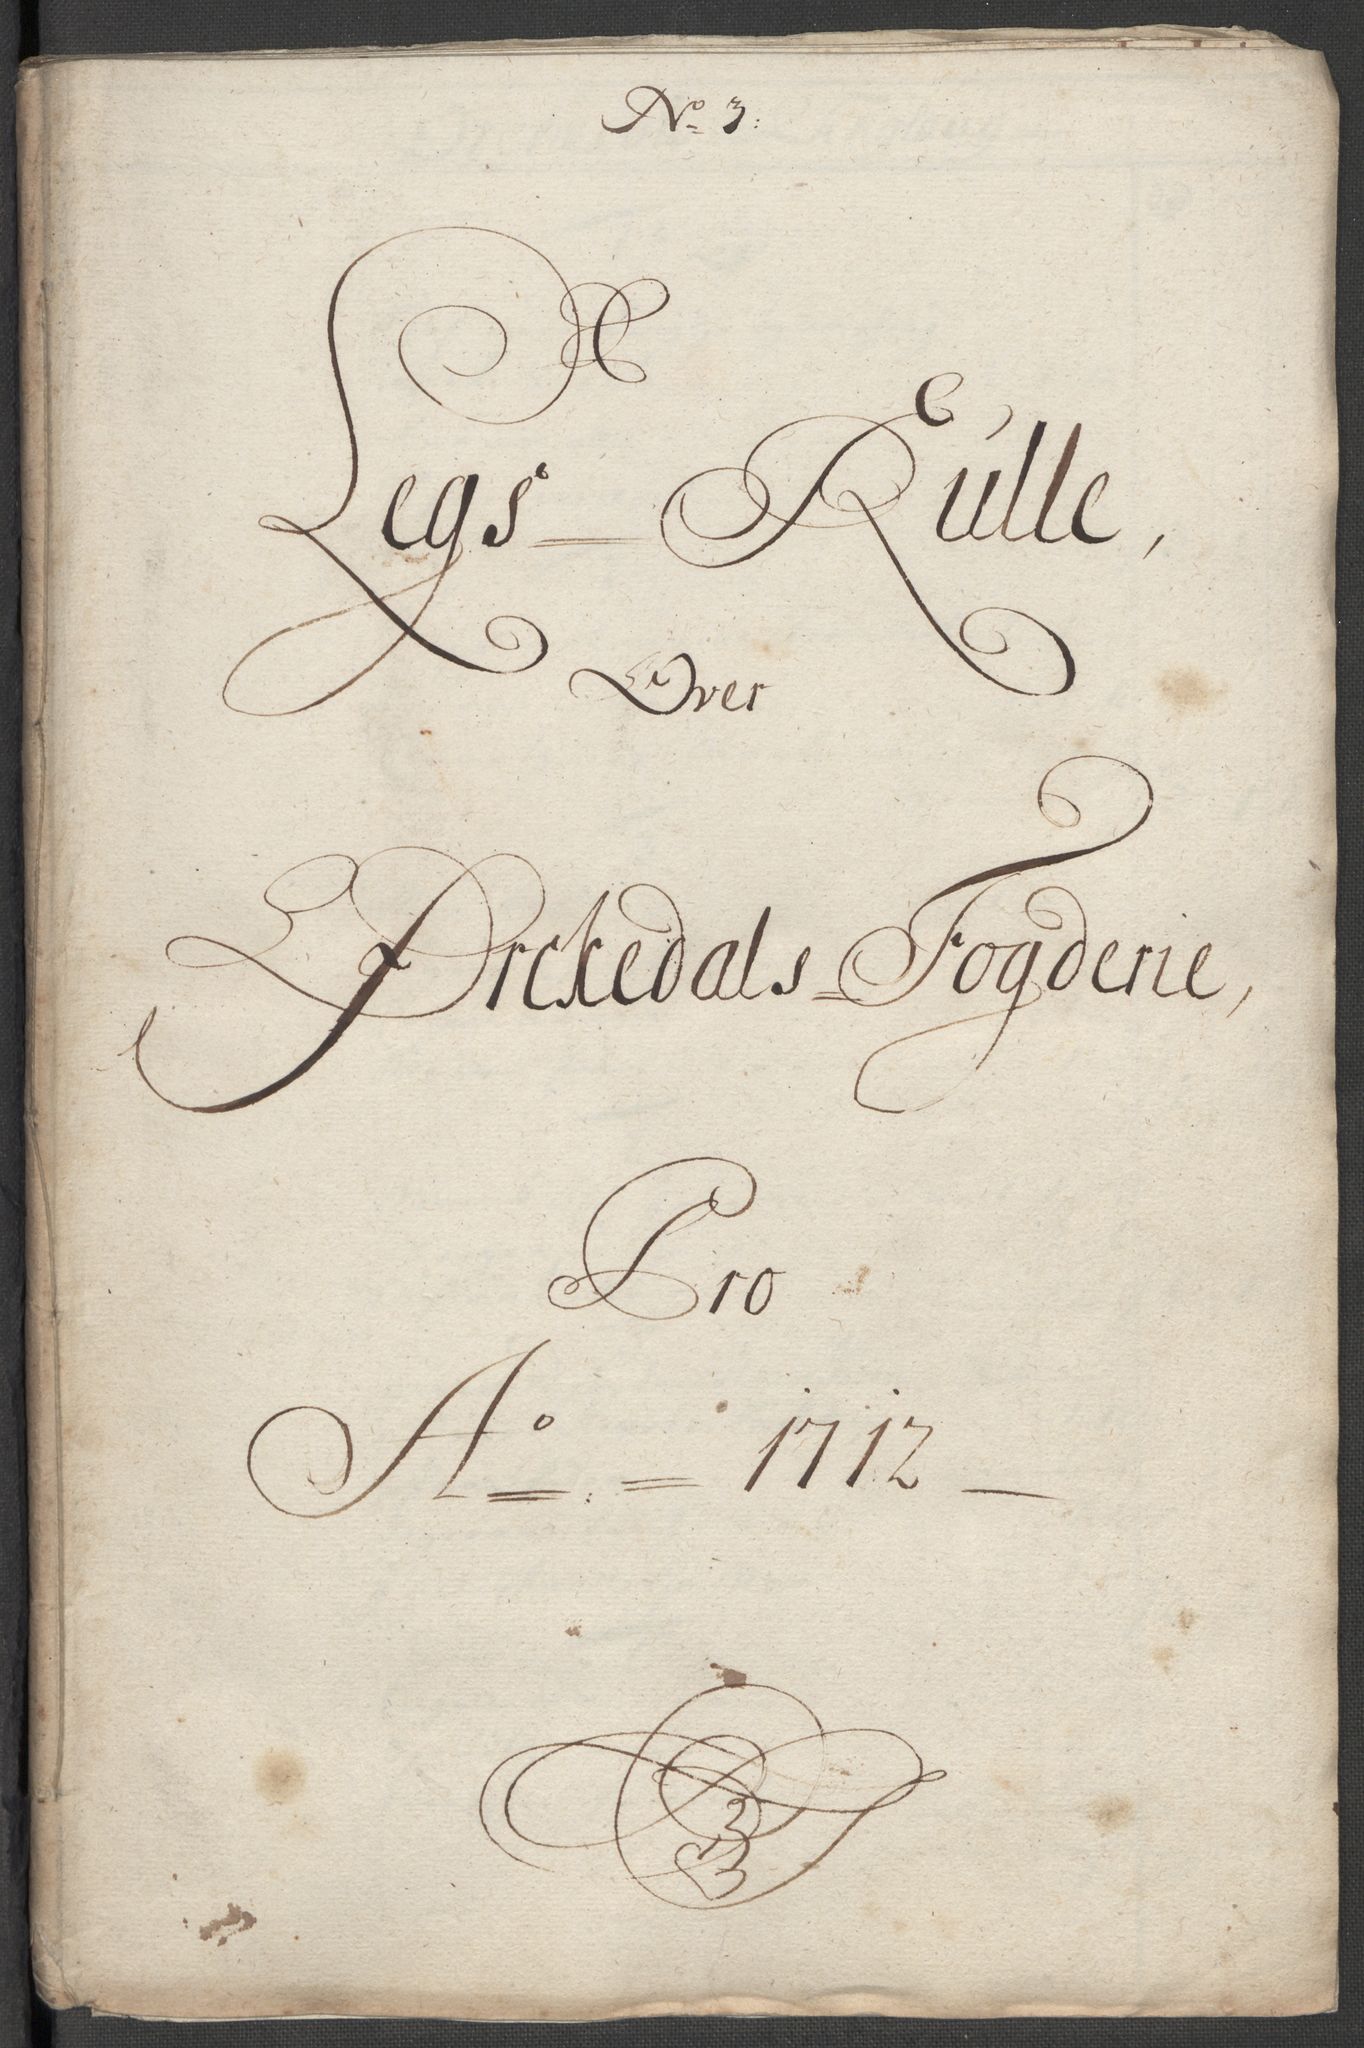 No 3:
Legs = Rúlle,
Over
Ørckedals = Fogderie,
Pro
Ao = 1712